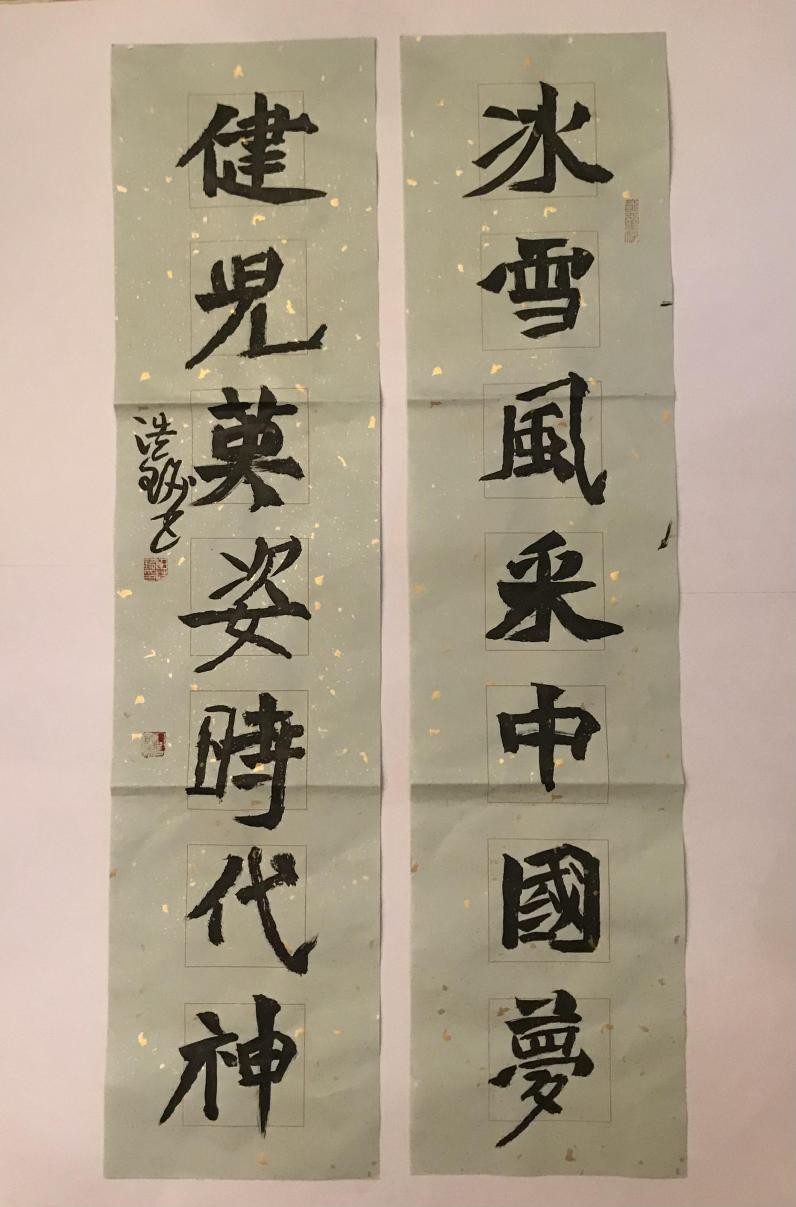 冰雪風采中國夢
健児英姿時代神